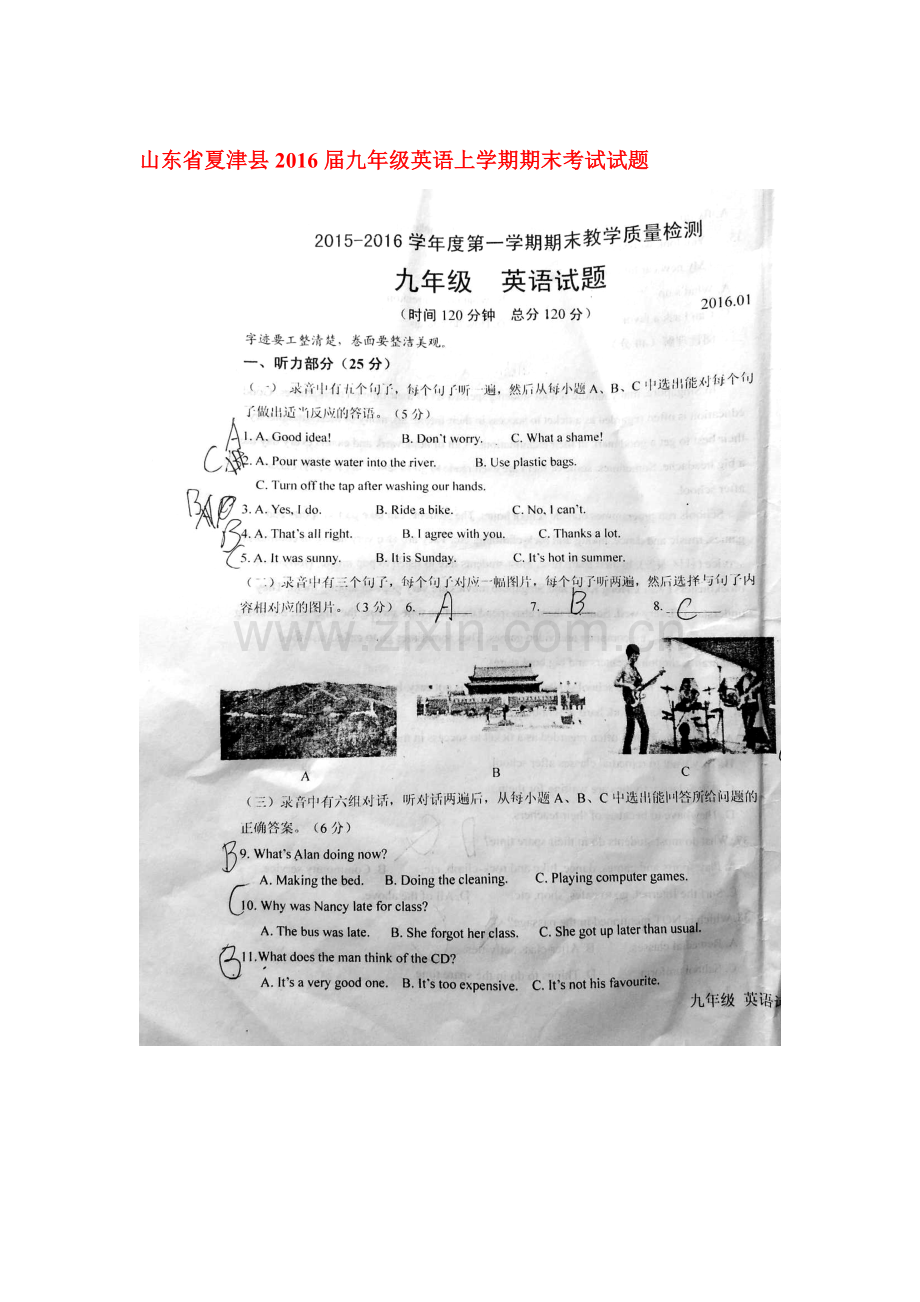 山东省夏津县2016届九年级英语上学期期末考试试题
2015-2016学年度第一学期期末教学质量检测
九年级 英语试题
2016.01
(时间120分钟 总分120分)
字迹要工整清楚，卷面要整洁美观。
一、听力部分(25分)
(一) 录音中有五个句子，每个句子听一遍，然后从每小题A、B、C中选出能对每个句
子做出适当反应的答语。(5分)
A 1. A. Good idea! B. Don't worry. C. What a shame!
C 2. A. Pour waste water into the river. B. Use plastic bags.
C. Turn off the tap after washing our hands.
B 3. A. Yes, I do. B. Ride a bike. C. No, I can't.
B 4. A. That's all right. B. I agree with you. C. Thanks a lot.
C 5. A. It was sunny. B. It is Sunday. C. It's hot in summer.
(二) 录音中有三个句子，每个句子对应一幅图片，每个句子听两遍，然后选择与句子内
容相对应的图片。(3分) 6. A 7. B 8. C
www.zixin.com.cn
A B C
(三) 录音中有六组对话，听对话两遍后，从每小题A、B、C中选出能回答所给问题的
正确答案。(6分)
B 9. What's Alan doing now?
A. Making the bed. B. Doing the cleaning. C. Playing computer games.
C 10. Why was Nancy late for class?
A. The bus was late. B. She forgot her class. C. She got up later than usual.
B 11.What does the man think of the CD?
A. It's a very good one. B. It's too expensive. C. It's not his favourite.
九年级 英语试